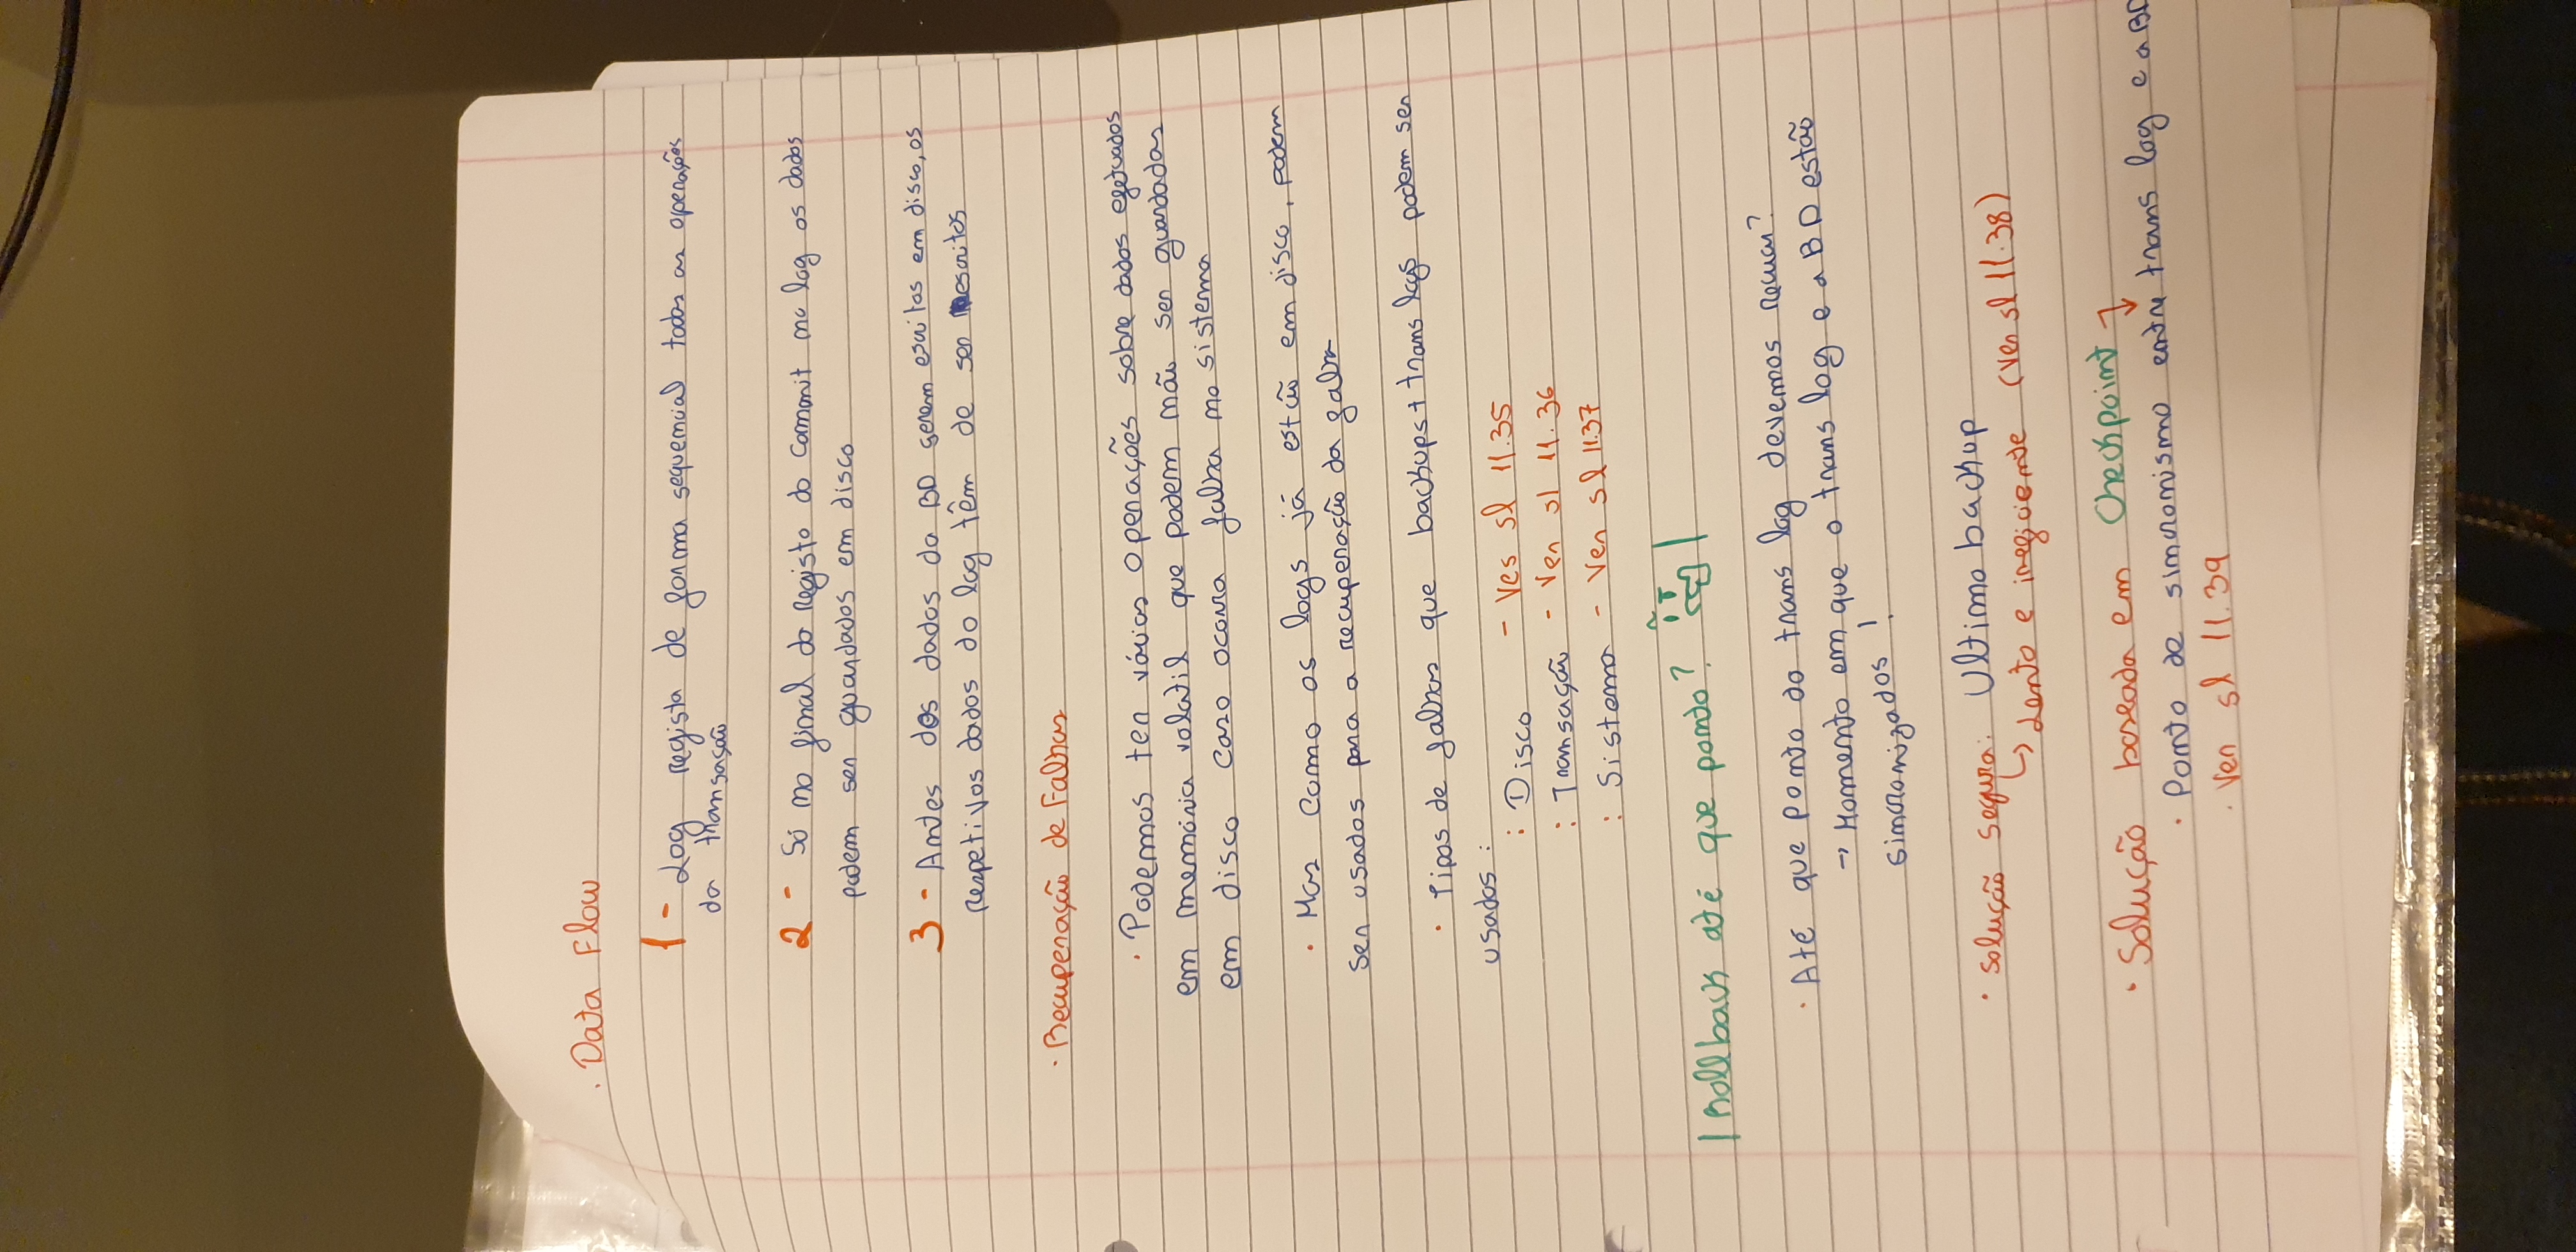 . Data Flow
1 - Log regista de forma sequencial todas as operações
da transação
2 - Só no final do registo do commit no log os dados
podem ser guardados em disco
3 - Antes dos dados da BD serem escritos em disco, os
respetivos dados do log têm de ser escritos
. Recuperação de Falhas
. Podemos ter várias operações sobre dados efetuados
em memória volatil que podem não ser guardadas
em disco caso ocorra falha no sistema
. Mas como os logs já estão em disco, podem
ser usados para a recuperação da falha
. Tipos de falhas que backups + trans logs podem ser
usados :
: Disco - Ves sl 11.35
: Transação - Ver sl 11.36
: Sistema - Ver sl 11.37
| Rollback até que ponto? |
. Até que ponto do trans log devemos recuar?
→ Momento em que o trans log e a BD estão
sincronizados !
. Solução segura: Ultimo backup
↳ Lento e ineficiente (ver sl 11.38)
. Solução baseada em Checkpoint ↴
. Ponto de sincronismo entre trans log e a BD
. Ver sl 11.39